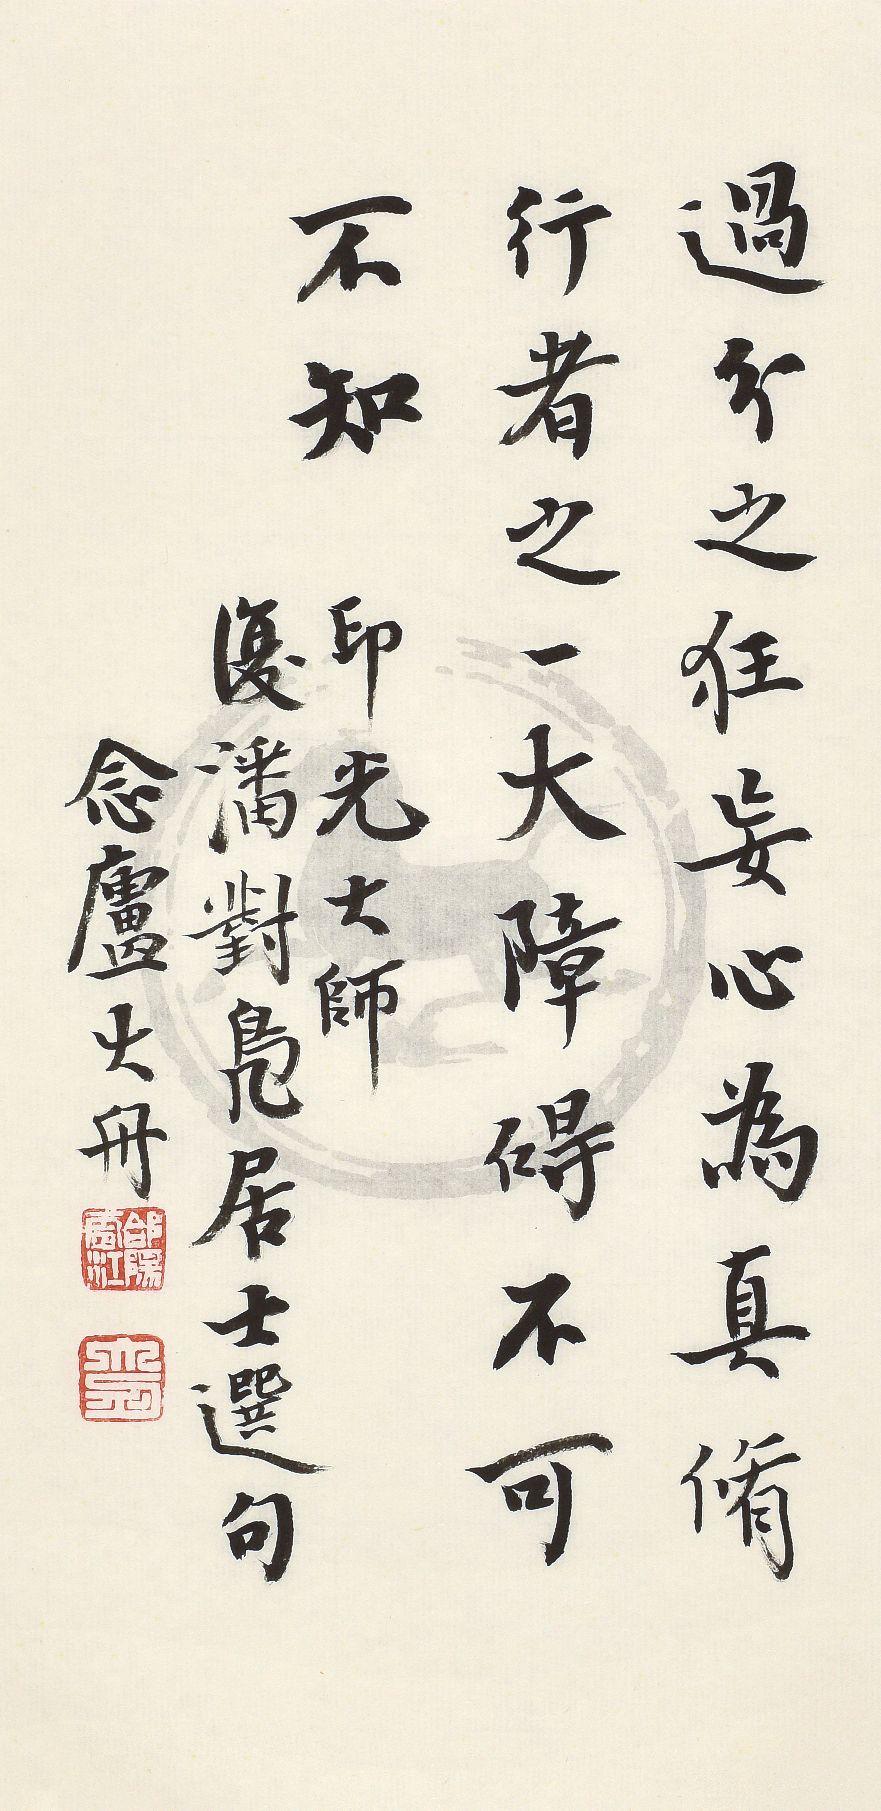 過分之狂妄心為真脩
行者之一大障碍不可
不知
印光大師
復潘對鳧居士選句
念廬